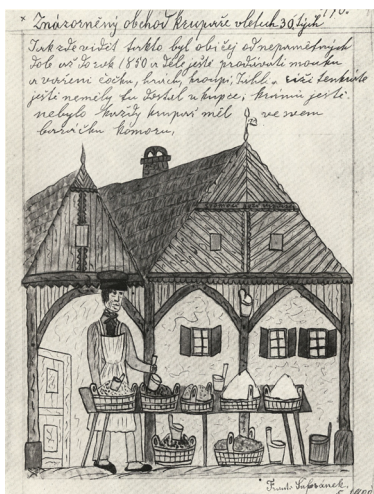 × Znázorněný obchod krupaře v letech 30. tých
Jak zde vidět takto byl običej od nepamětných
dob až do rok 1850 a déle ještě prodávati mouku
a vaření čočku, hrach, kroupi, Jahli a tenkráte
ještě neměly tu dostal u kupce, krámů ještě
nebylo každy krupař měl ve svem
baráčku komoru,
Frant. Šafránek.